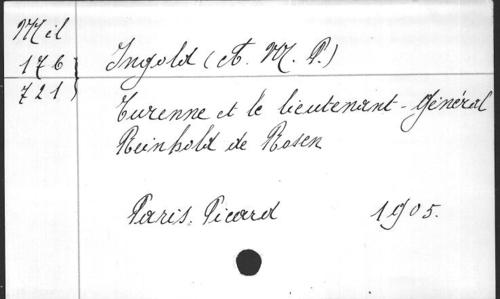 Mil
176 } Ingold (A. M. P.)
721 }
Turenne et le lieutenant-général
Reinhold de Rosen
Paris, Picard 1905.